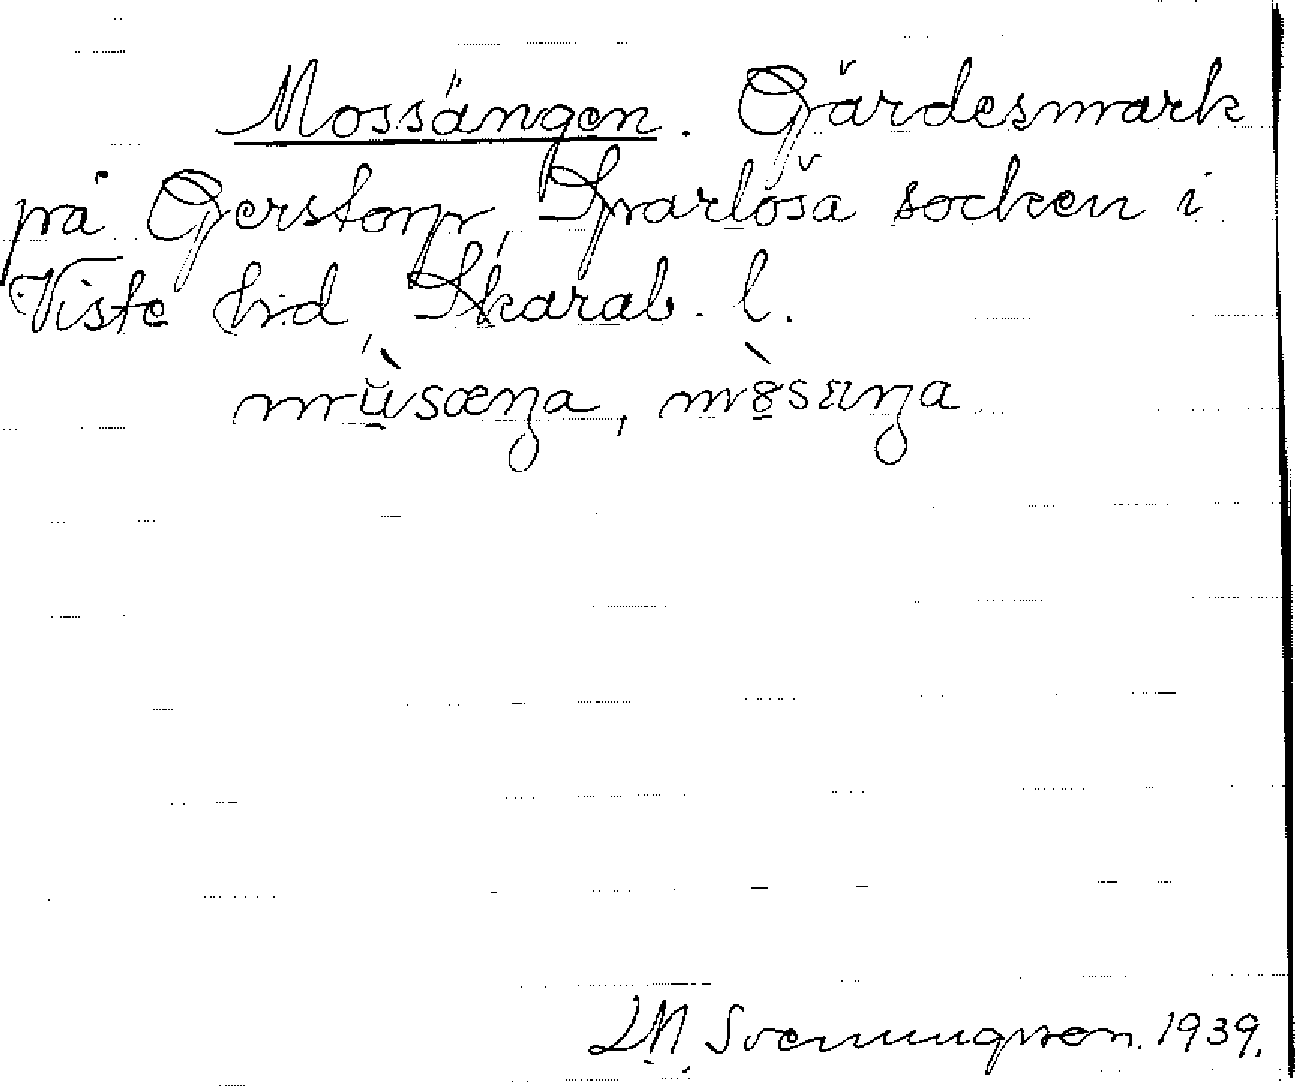 Mossängen. Gärdesmark
på Gerstorp, Sparlösa socken i
Viste hd, Skarab. l.
mùsæŋa,
L.M. Svenungsson. 1939.